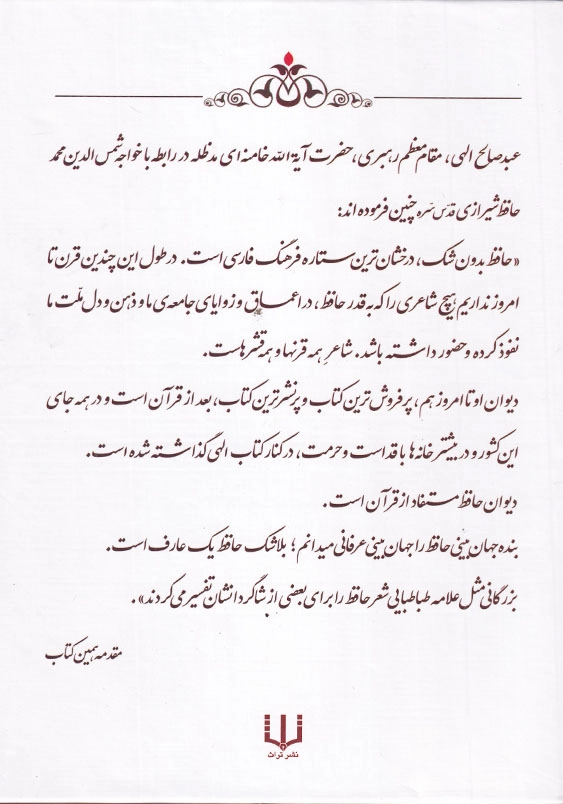 عبد صالح الهی، مقام معظم رهبری، حضرت آیة الله خامنه ای مدظله در رابطه با خواجه شمس الدین محمد
حافظ شیرازی قدّس سّره چنین فرموده اند:
«حافظ بدون شک، درخشان ترین ستاره فرهنگ فارسی است. در طول این چندین قرن تا
امروز نداریم هیچ شاعری را که به قدر حافظ، در اعماق و زوایای جامعه ی ما و ذهن و دل ملّت ما
نفوذ کرده و حضور داشته باشد. شاعرِ همه قرنها و همه قشرهاست.
دیوان او تا امروز هم، پرفروش ترین کتاب و پرنشرترین کتاب، بعد از قرآن است و در همه جای
این کشور و در بیشتر خانه ها با قداست و حرمت، در کنار کتاب الهی گذاشته شده است.
دیوان حافظ مستفاد از قرآن است.
بنده جهان بینی حافظ را جهان بینی عرفانی میدانم؛ بلاشک حافظ یک عارف است.
بزرگانی مثل علامه طباطبایی شعر حافظ را برای بعضی از شاگردانشان تفسیر می کردند».
مقدمه همین کتاب
نشر تراث